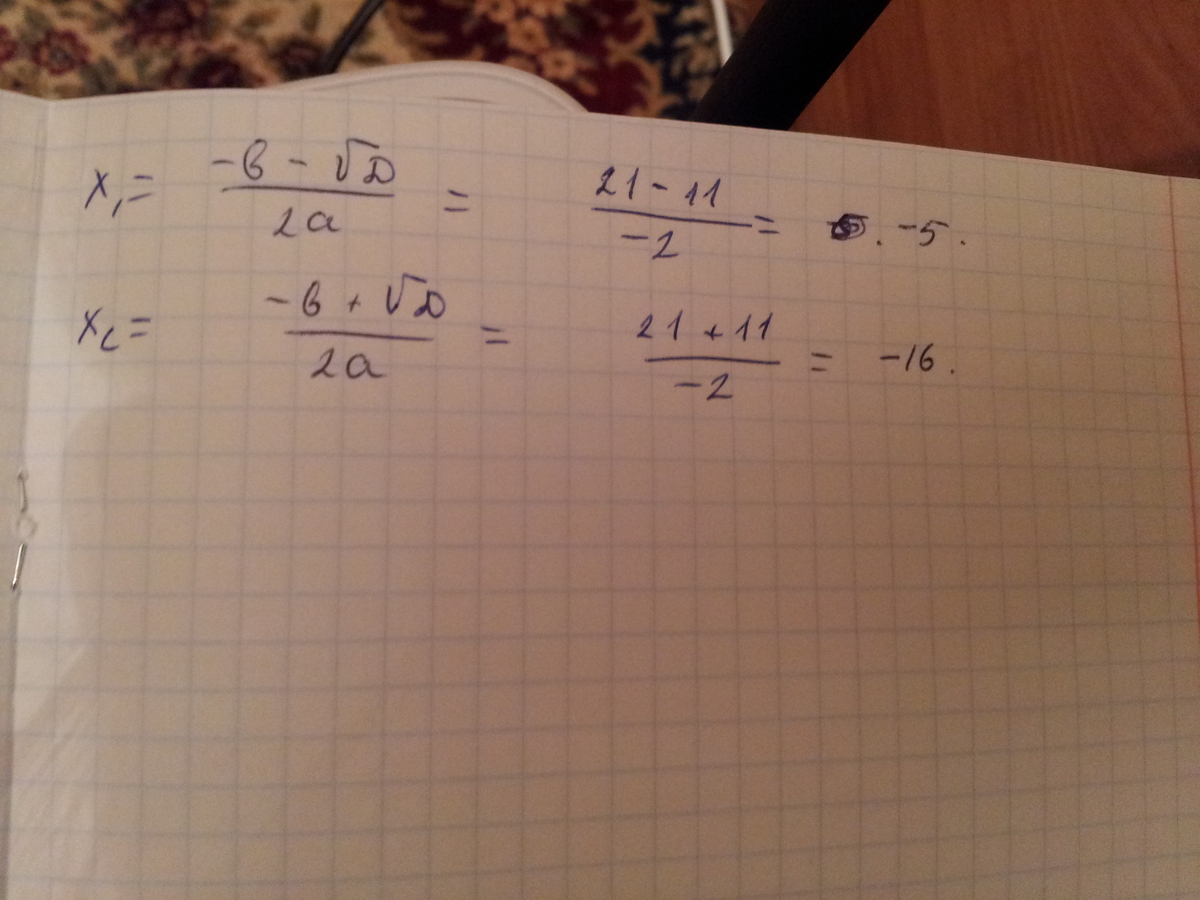 x₁ = (-в - √D)/(2a) = (21 - 11)/(-2) = . -5.
x₂ = (-в + √D)/(2a) = (21 + 11)/(-2) = -16.